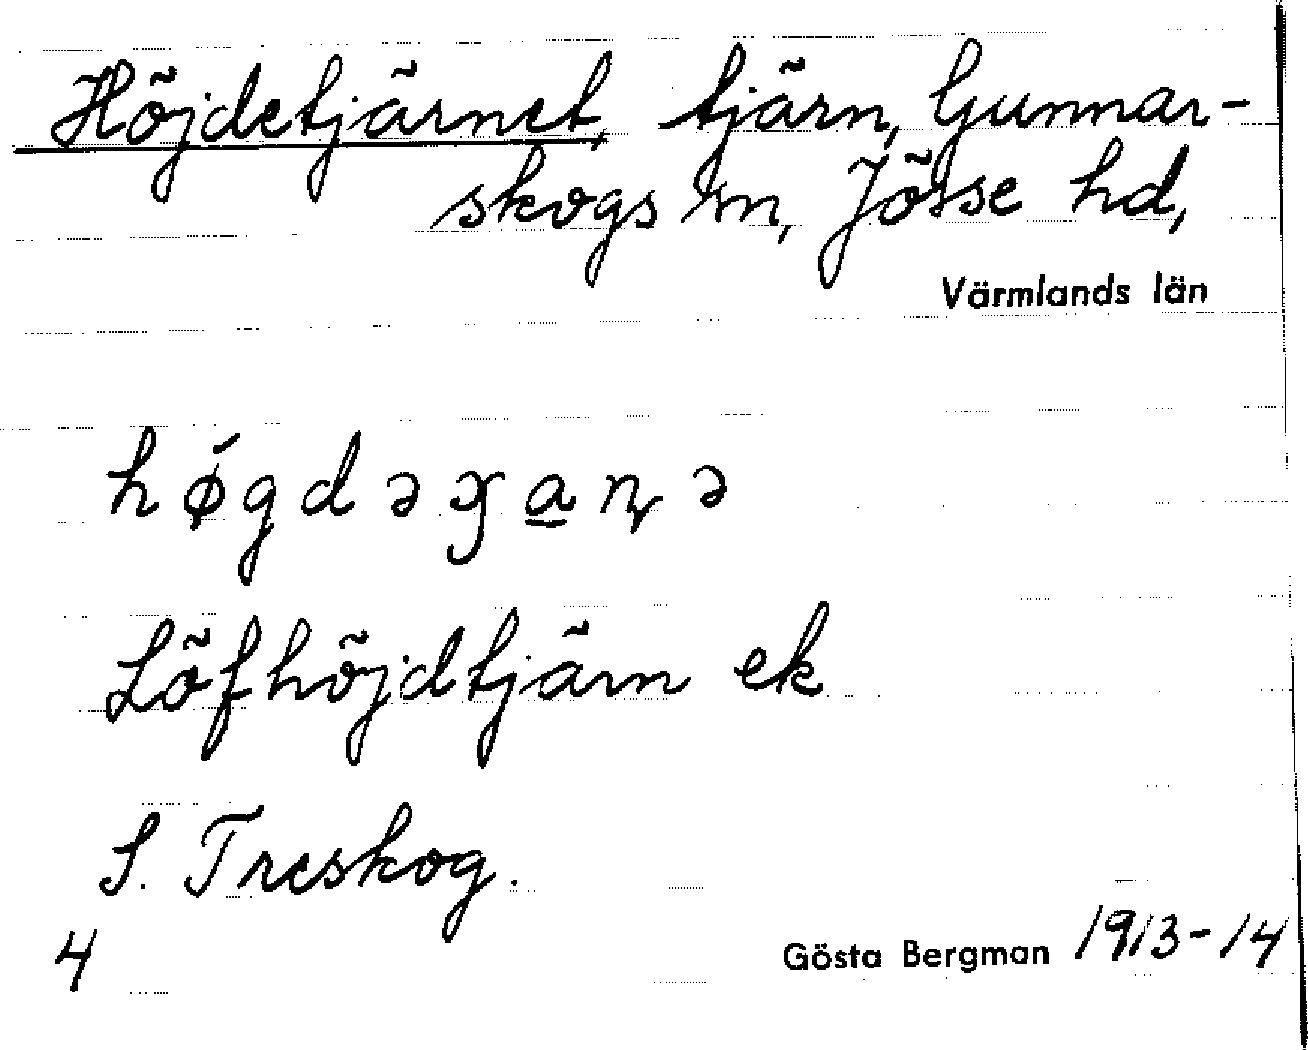 Höjdetjärnet, tjärn, Gunnar-
skogs sn, Jösse hd,
Värmlands län
hǿgdə𐑿a̲ɳə
Löfhöjdtjärn ek
S. Treskog.
4
Gösta Bergman 1913-14